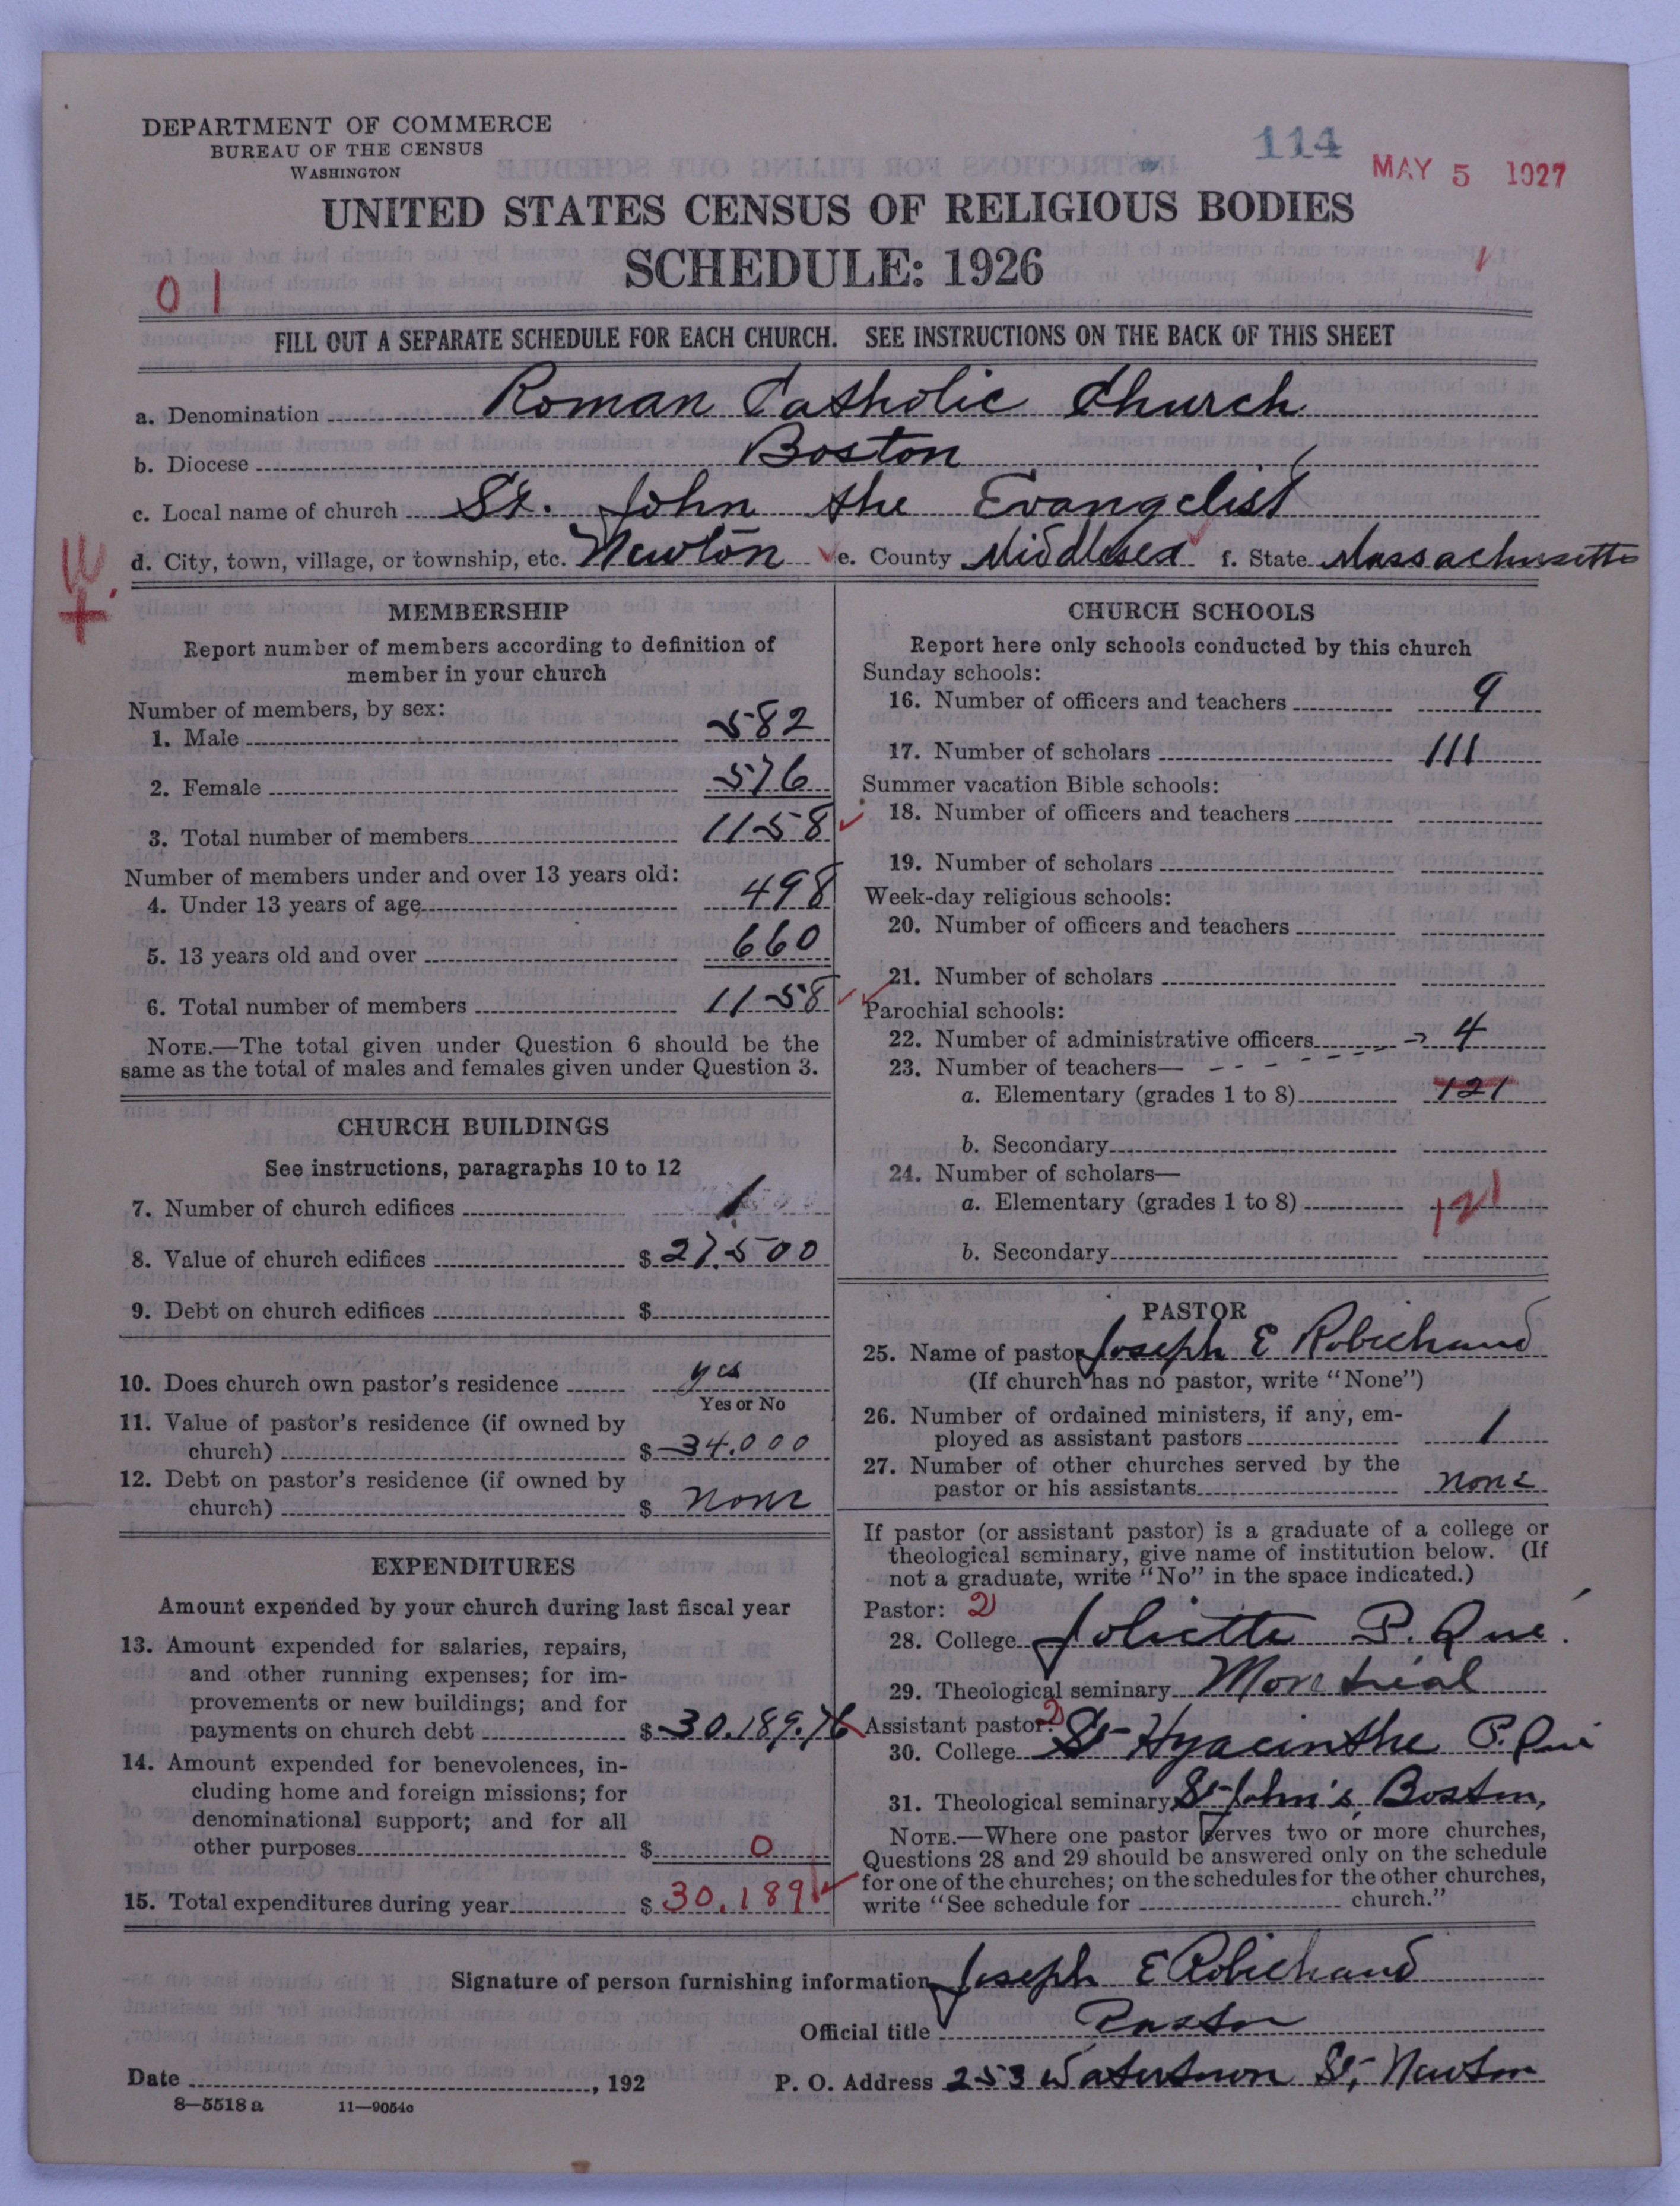 DEPARTMENT OF COMMERCE
BUREAU OF THE CENSUS
WASHINGTON
114
MAY 5 1927
UNITED STATES CENSUS OF RELIGIOUS BODIES
SCHEDULE: 1926
01
FILL OUT A SEPARATE SCHEDULE FOR EACH CHURCH. SEE INSTRUCTIONS ON THE BACK OF THIS SHEET
a. Denomination Roman Catholic Church
b. Diocese Boston
c. Local name of church St. John the Evangelist
d. City, town, village, or township, etc. Newton e. County Middlesex f. State Massachusetts
MEMBERSHIP
Report number of members according to definition of
member in your church
Number of members, by sex:
1. Male 582
2. Female 576
3. Total number of members 1158
Number of members under and over 13 years old:
4. Under 13 years of age 498
5. 13 years old and over 660
6. Total number of members 1158
NOTE.—The total given under Question 6 should be the
same as the total of males and females given under Question 3.
CHURCH BUILDINGS
See instructions, paragraphs 10 to 12
7. Number of church edifices 1
8. Value of church edifices $ 27.500
9. Debt on church edifices $
10. Does church own pastor's residence yes
Yes or No
11. Value of pastor's residence (if owned by
church) $ 34.000
12. Debt on pastor's residence (if owned by
church) $ none
EXPENDITURES
Amount expended by your church during last fiscal year
13. Amount expended for salaries, repairs,
and other running expenses; for im-
provements or new buildings; and for
payments on church debt $ 30.189.76
14. Amount expended for benevolences, in-
cluding home and foreign missions; for
denominational support; and for all
other purposes $ 0
15. Total expenditures during year $ 30.189
CHURCH SCHOOLS
Report here only schools conducted by this church
Sunday schools:
16. Number of officers and teachers 9
17. Number of scholars 111
Summer vacation Bible schools:
18. Number of officers and teachers
19. Number of scholars
Week-day religious schools:
20. Number of officers and teachers
21. Number of scholars
Parochial schools:
22. Number of administrative officers 4
23. Number of teachers—
a. Elementary (grades 1 to 8) 121
b. Secondary
24. Number of scholars—
a. Elementary (grades 1 to 8) 121
b. Secondary
PASTOR
25. Name of pastor Joseph E Robichaud
(If church has no pastor, write "None")
26. Number of ordained ministers, if any, em-
ployed as assistant pastors 1
27. Number of other churches served by the
pastor or his assistants none
If pastor (or assistant pastor) is a graduate of a college or
theological seminary, give name of institution below. (If
not a graduate, write "No" in the space indicated.)
Pastor: 2
28. College Joliette P. Que.
29. Theological seminary Montreal
Assistant pastor: 2
30. College St Hyacinthe P. Que
31. Theological seminary St John's, Boston,
NOTE.—Where one pastor serves two or more churches,
Questions 28 and 29 should be answered only on the schedule
for one of the churches; on the schedules for the other churches,
write "See schedule for church."
Signature of person furnishing information Joseph E Robichaud
Official title Pastor
Date , 192 P. O. Address 253 Watertown St, Newton
8—5518 a 11—9054c